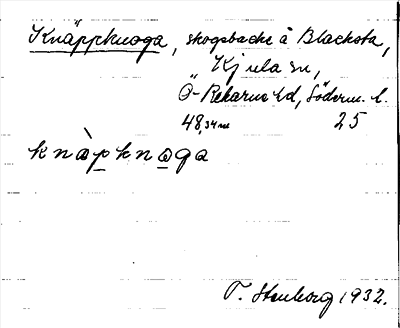 Knäppknoga, skogsbacke å Blacksta,
Kjula sn,
Ö-Rekarne hd, Söderm. l.
48,34 m 25
knàpknoga
T. Stenborg 1932.